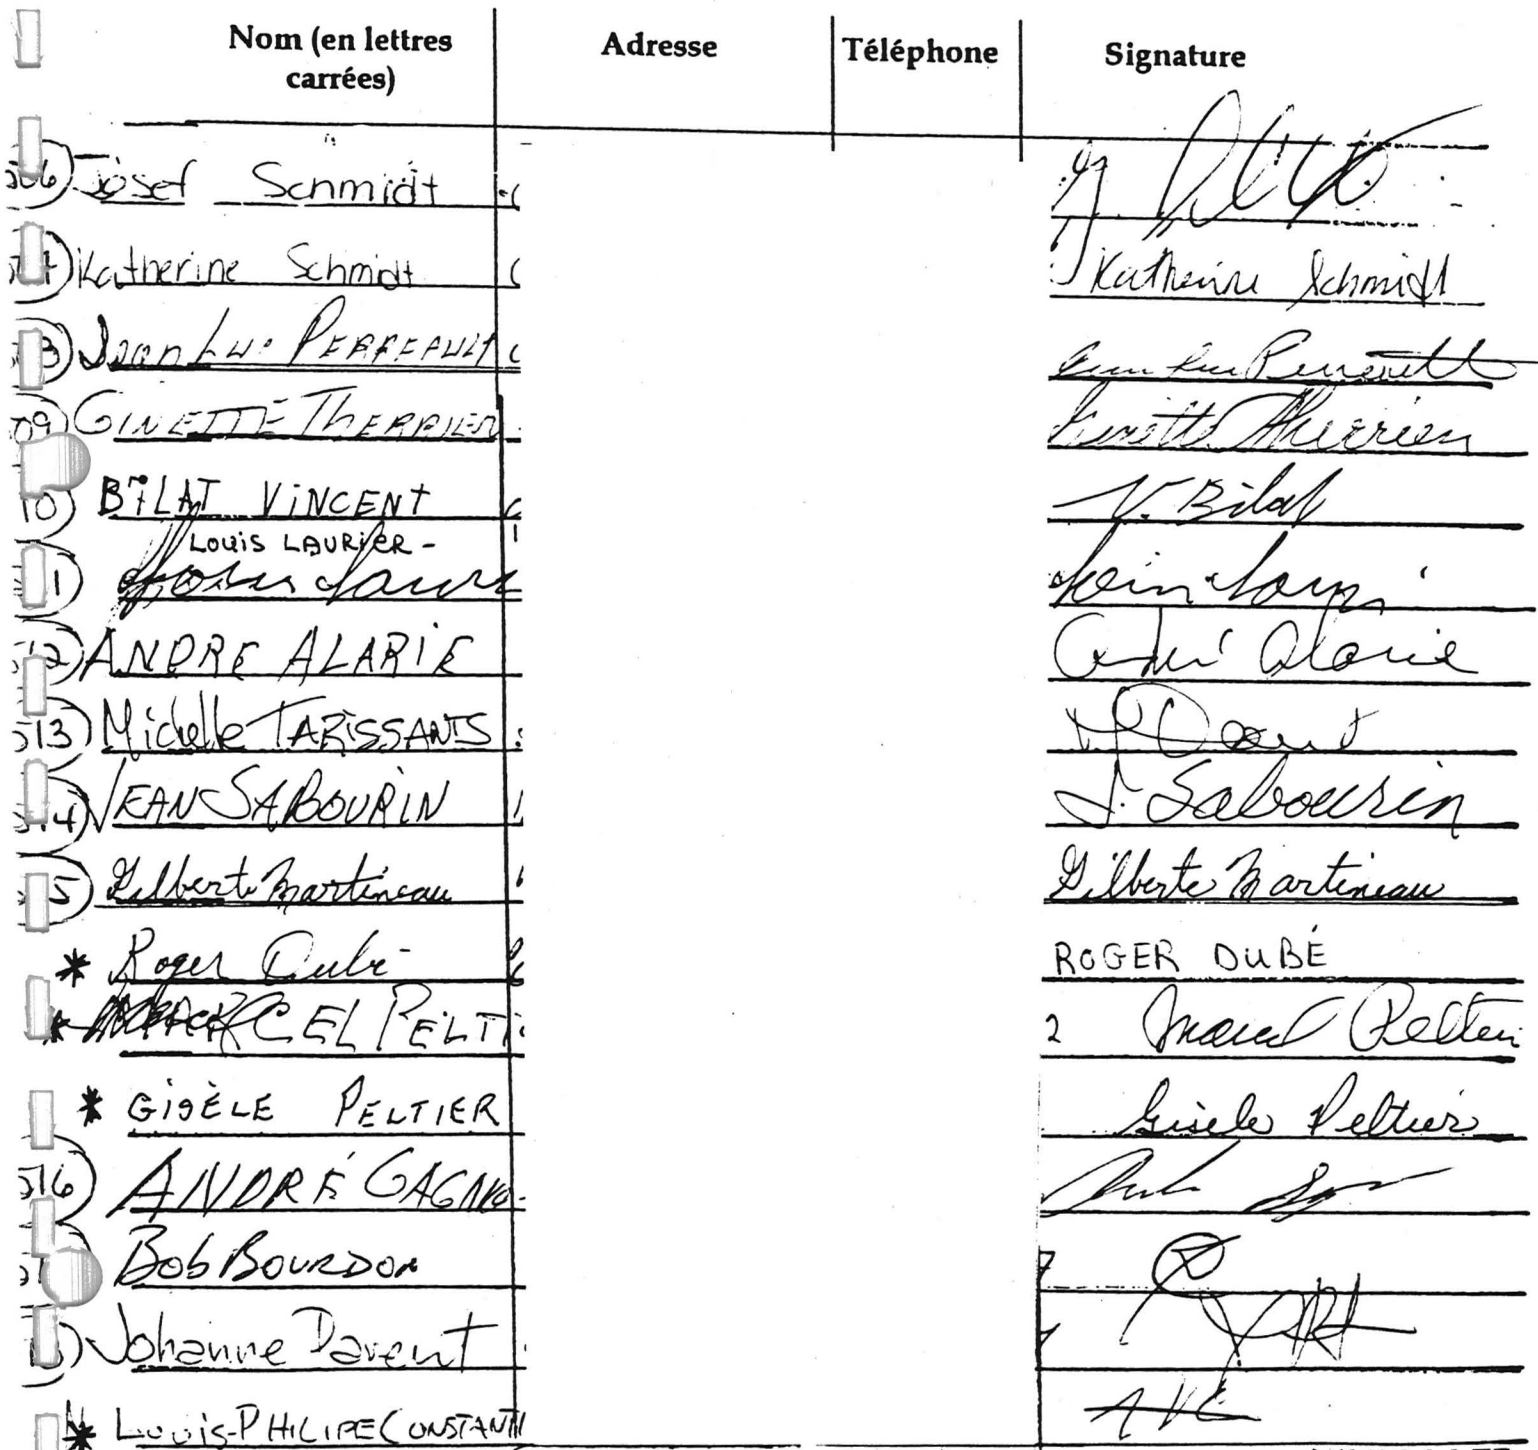 Nom (en lettres carrées) Adresse Téléphone Signature
Josef Schmidt
Katherine Schmidt Katherine Schmidt
Jean Luc PERREAULT
09 GINETTE THERRIEN Ginette Therrien
10 BILAT VINCENT V. Bilat
LOUIS LAURIER-
ANDRE ALARIE André Alarie
513 Michelle TARISSANTS
JEAN SABOURIN J. Sabourin
5 Gilberte Martineau Gilberte Martineau
* Roger Dubé ROGER DUBÉ
* MARCEL PELTI 2 Marcel Peltier
* GISÈLE PELTIER Gisele Peltier
516 ANDRÉ GAGNO
Bob BOURDON
Johanne Davent
* Louis-PHILIPE CONSTANTI